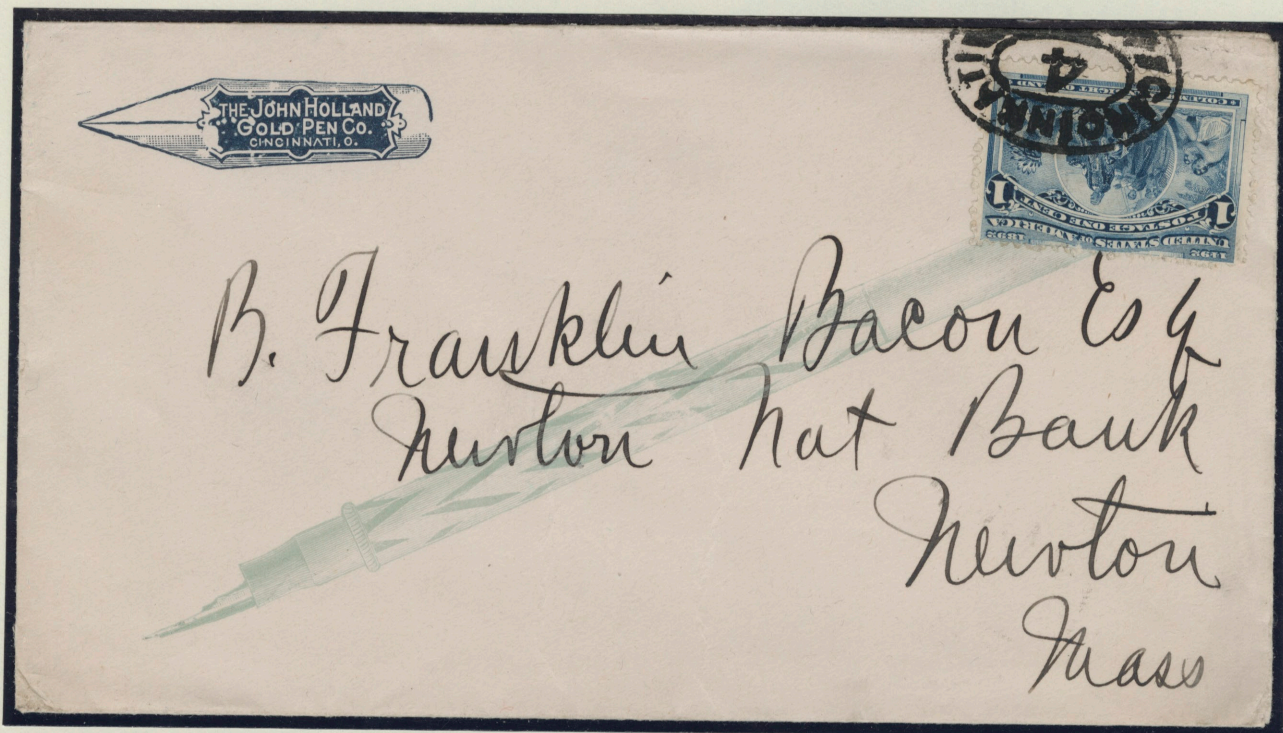 THE JOHN HOLLAND
GOLD PEN CO.
CINCINNATI, O.
CINCINNATI
4
1492 1892
UNITED STATES OF AMERICA
POSTAGE ONE CENT
1 1
B. Franklin Bacon Esq
Newton Nat Bank
Newton
Mass